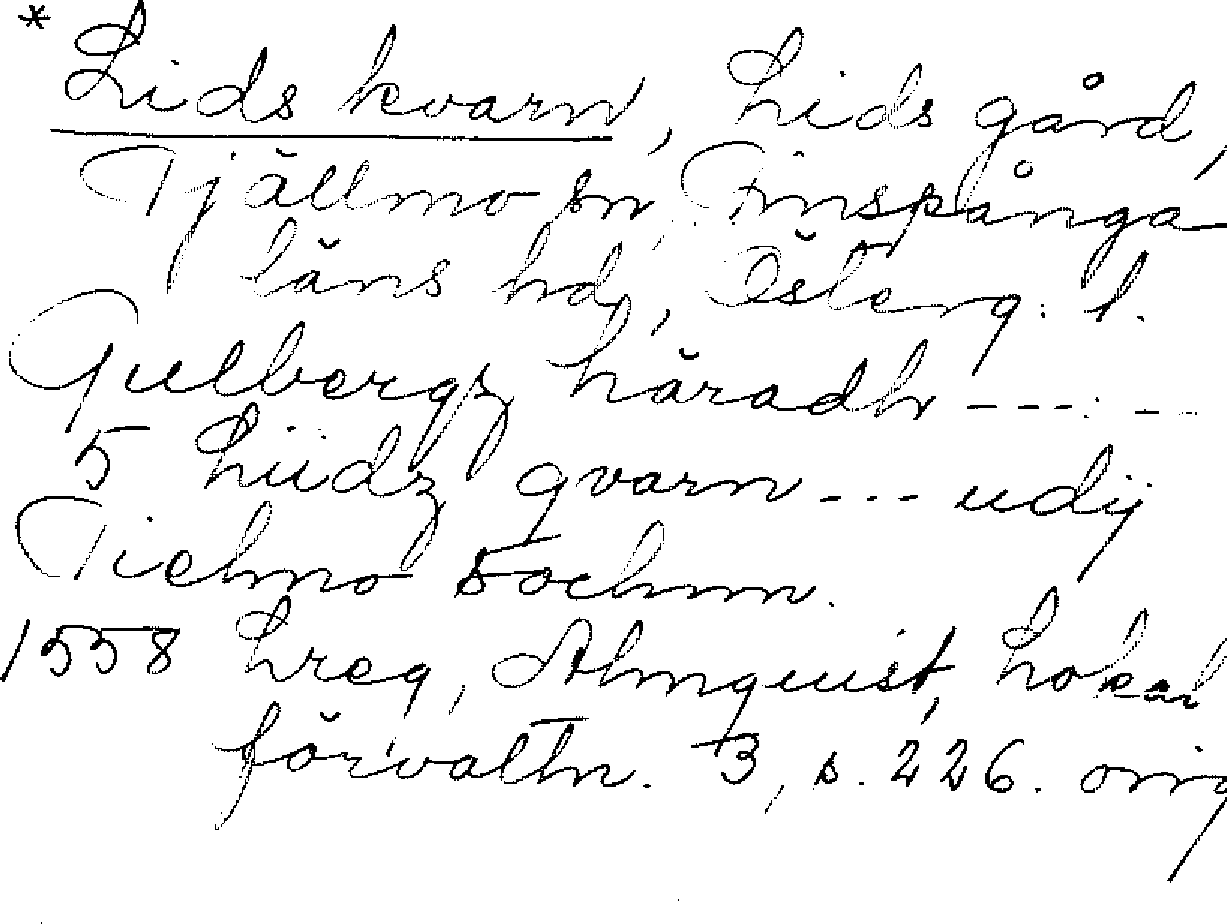 * Lids kvarn, Lids gård,
Tjällmo sn, Finspånga
läns hd, Österg. l.
Gulbergz häradh - - - . - -
5 Liidz qvarn - - - udij
Tielmo Sochnn.
1558 Lreg, Almquist, Lokal
förvaltn. 3, s. 226. orig